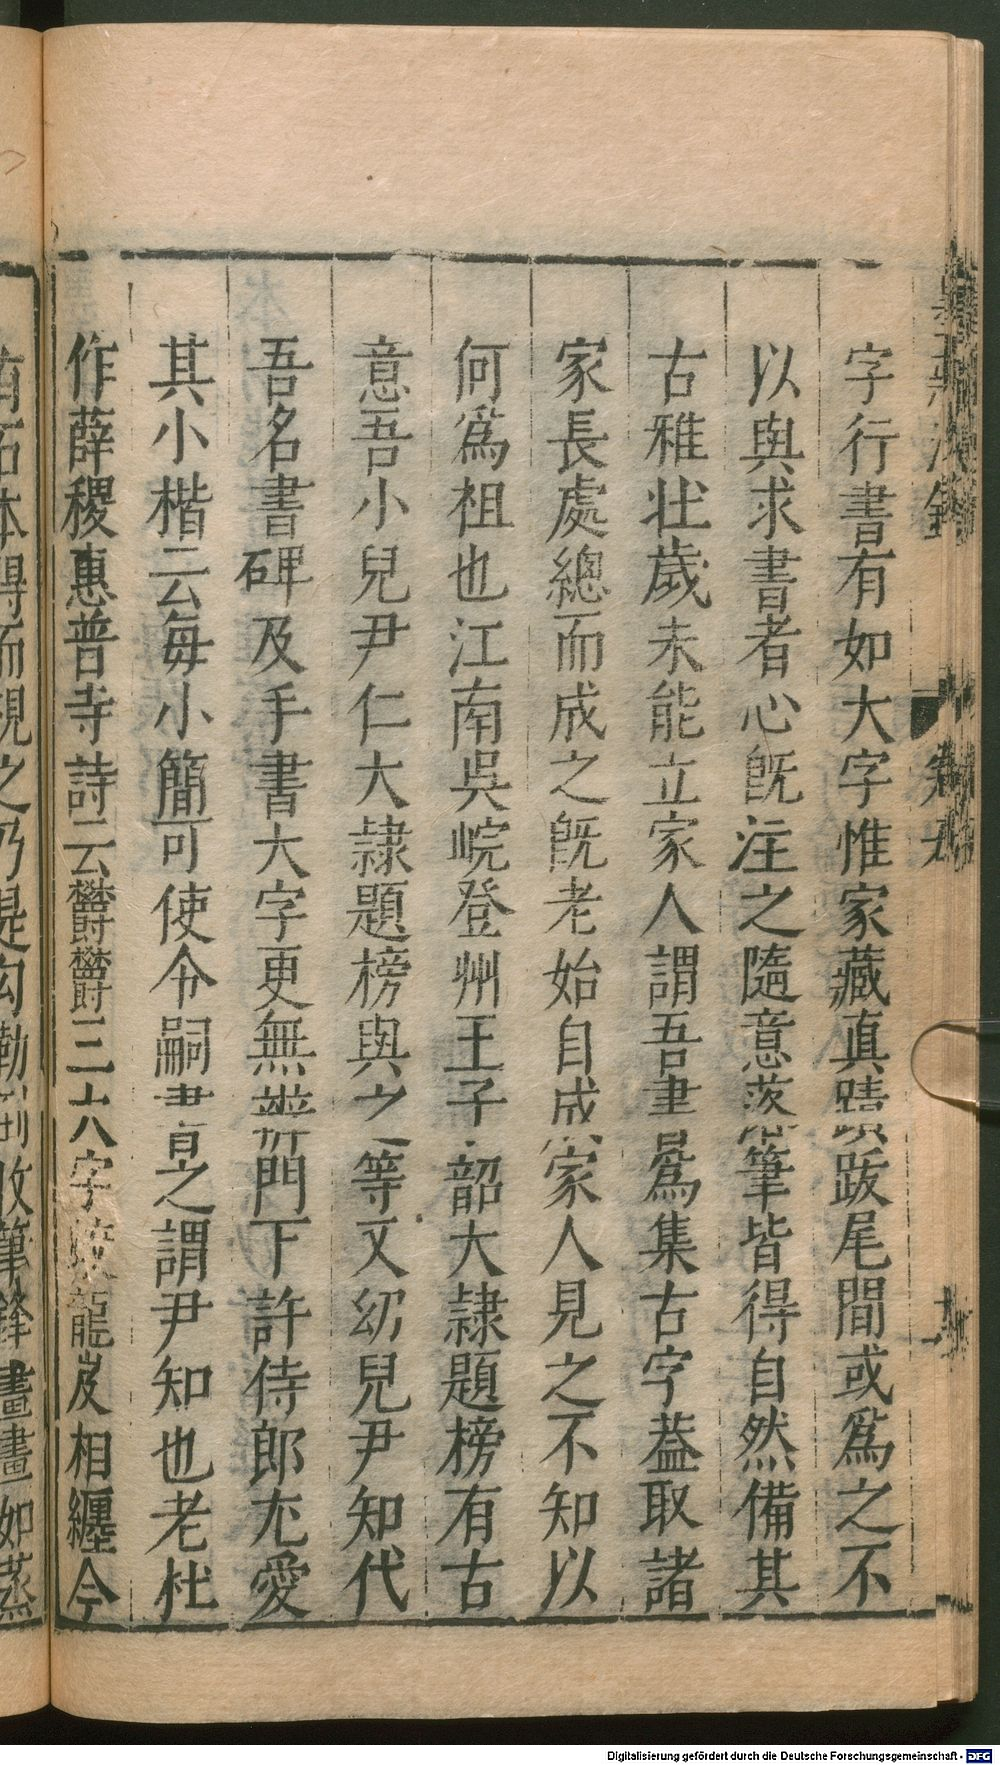 字行書有如大字惟家藏真蹟跋尾間或爲之不
以與求書者心旣注之隨意落筆皆得自然備其
古雅壯歲未能立家人謂吾書爲集古字葢取諸
家長處總而成之旣老始自成家人見之不知以
何爲祖也江南吳皖登州王子韶大隷題榜有古
意吾小兒尹仁大隷題榜與之等又幼兒尹知代
吾名書碑及手書大字更無辨門下許侍郎尤愛
其小楷云每小簡可使令嗣書之謂尹知也老杜
作薛稷惠普寺詩云鬱鬱三大字龍岌相纏今
有石本得而視之乃是勾勒收筆鋒畫畫如蒸
Digitalisierung gefördert durch die Deutsche Forschungsgemeinschaft - DFG